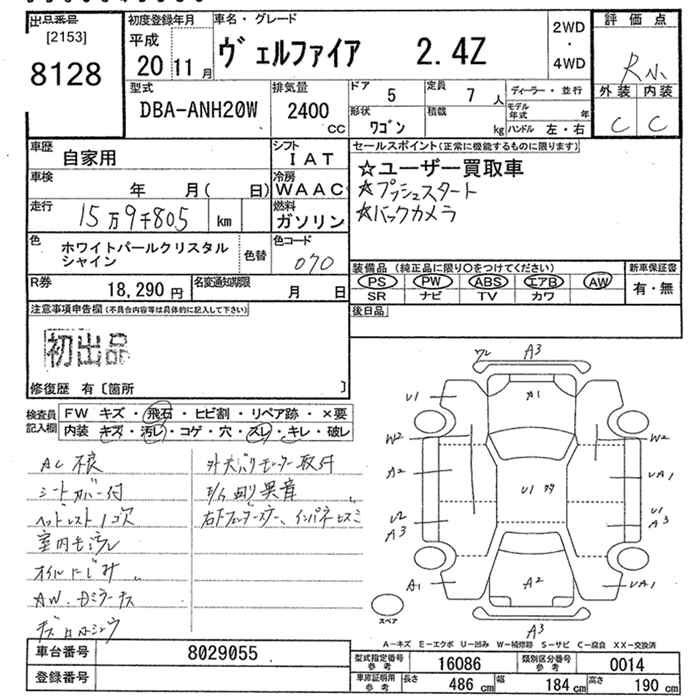 出品番号
[2153]
8128
初度登録年月
平成
20 11月
車名・グレード
ヴェルファイア 2.4Z
2WD
・
4WD
評価点
外装 内装
C C
型式
DBA-ANH20W
排気量
2400
CC
ドア 5
形状
ワゴン
定員 7 人
積載 kg
ディーラー・並行
モデル年式 年
ハンドル 左・右
車歴
自家用
シフト
IAT
車検
年 月( 日)
冷房
WAAC
走行
15万9千805 km
燃料
ガソリン
色
ホワイトパールクリスタル
シャイン
色替
色コード
070
R券
18,290 円
名変通知期限
月 日
セールスポイント(正常に機能するものに限ります)
☆ユーザー買取車
☆プッシュスタート
☆バックカメラ
装備品(純正品に限り○をつけてください)
PS PW ABS エアB AW
SR ナビ TV カワ
新車保証書
有・無
後日品
注意事項申告欄(不具合内容等は具体的に記入して下さい)
初出品
修復歴 有〔箇所 〕
検査員
記入欄
FW キズ・飛石・ヒビ割・リペア跡・×要
内装 キズ・汚レ・コゲ・穴・スレ・キレ・破レ
AC不良
シートカバー付
ヘッドレスト1コ欠
オイルにじみ
車台番号 8029055
登録番号
A3
A1
U1
W2
A2
U2
A3
A1
U1
A2
A3
W2
UA1
U1
A3
UA1
スペア
A-キズ E-エクボ U-凹み W-補修跡 S-サビ C-腐食 XX-交換済
型式指定番号
参考
16086
類別区分番号
参考
0014
車庫証明用
参考
長さ 486 cm 幅 184 cm 高さ 190 cm